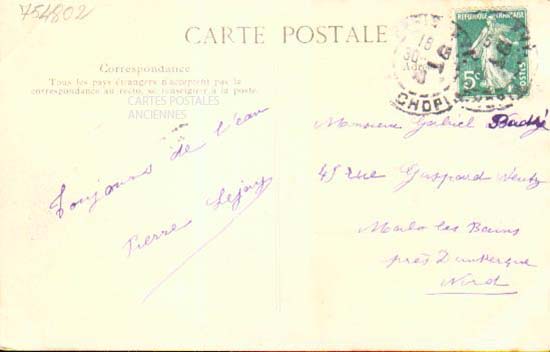 754802
CARTE POSTALE
Correspondance
Tous les pays étrangers n'acceptent pas la
correspondance au recto, se renseigner à la poste.
CARTES POSTALES
ANCIENNES
Toujours de l'eau
Pierre Lejay
PARIS
16
CHOPIN
RÉPUBLIQUE FRANÇAISE
5c
POSTES
Monsieur Gabriel
45 rue Gaspard
Malo les Bains
près Dunkerque
Nord